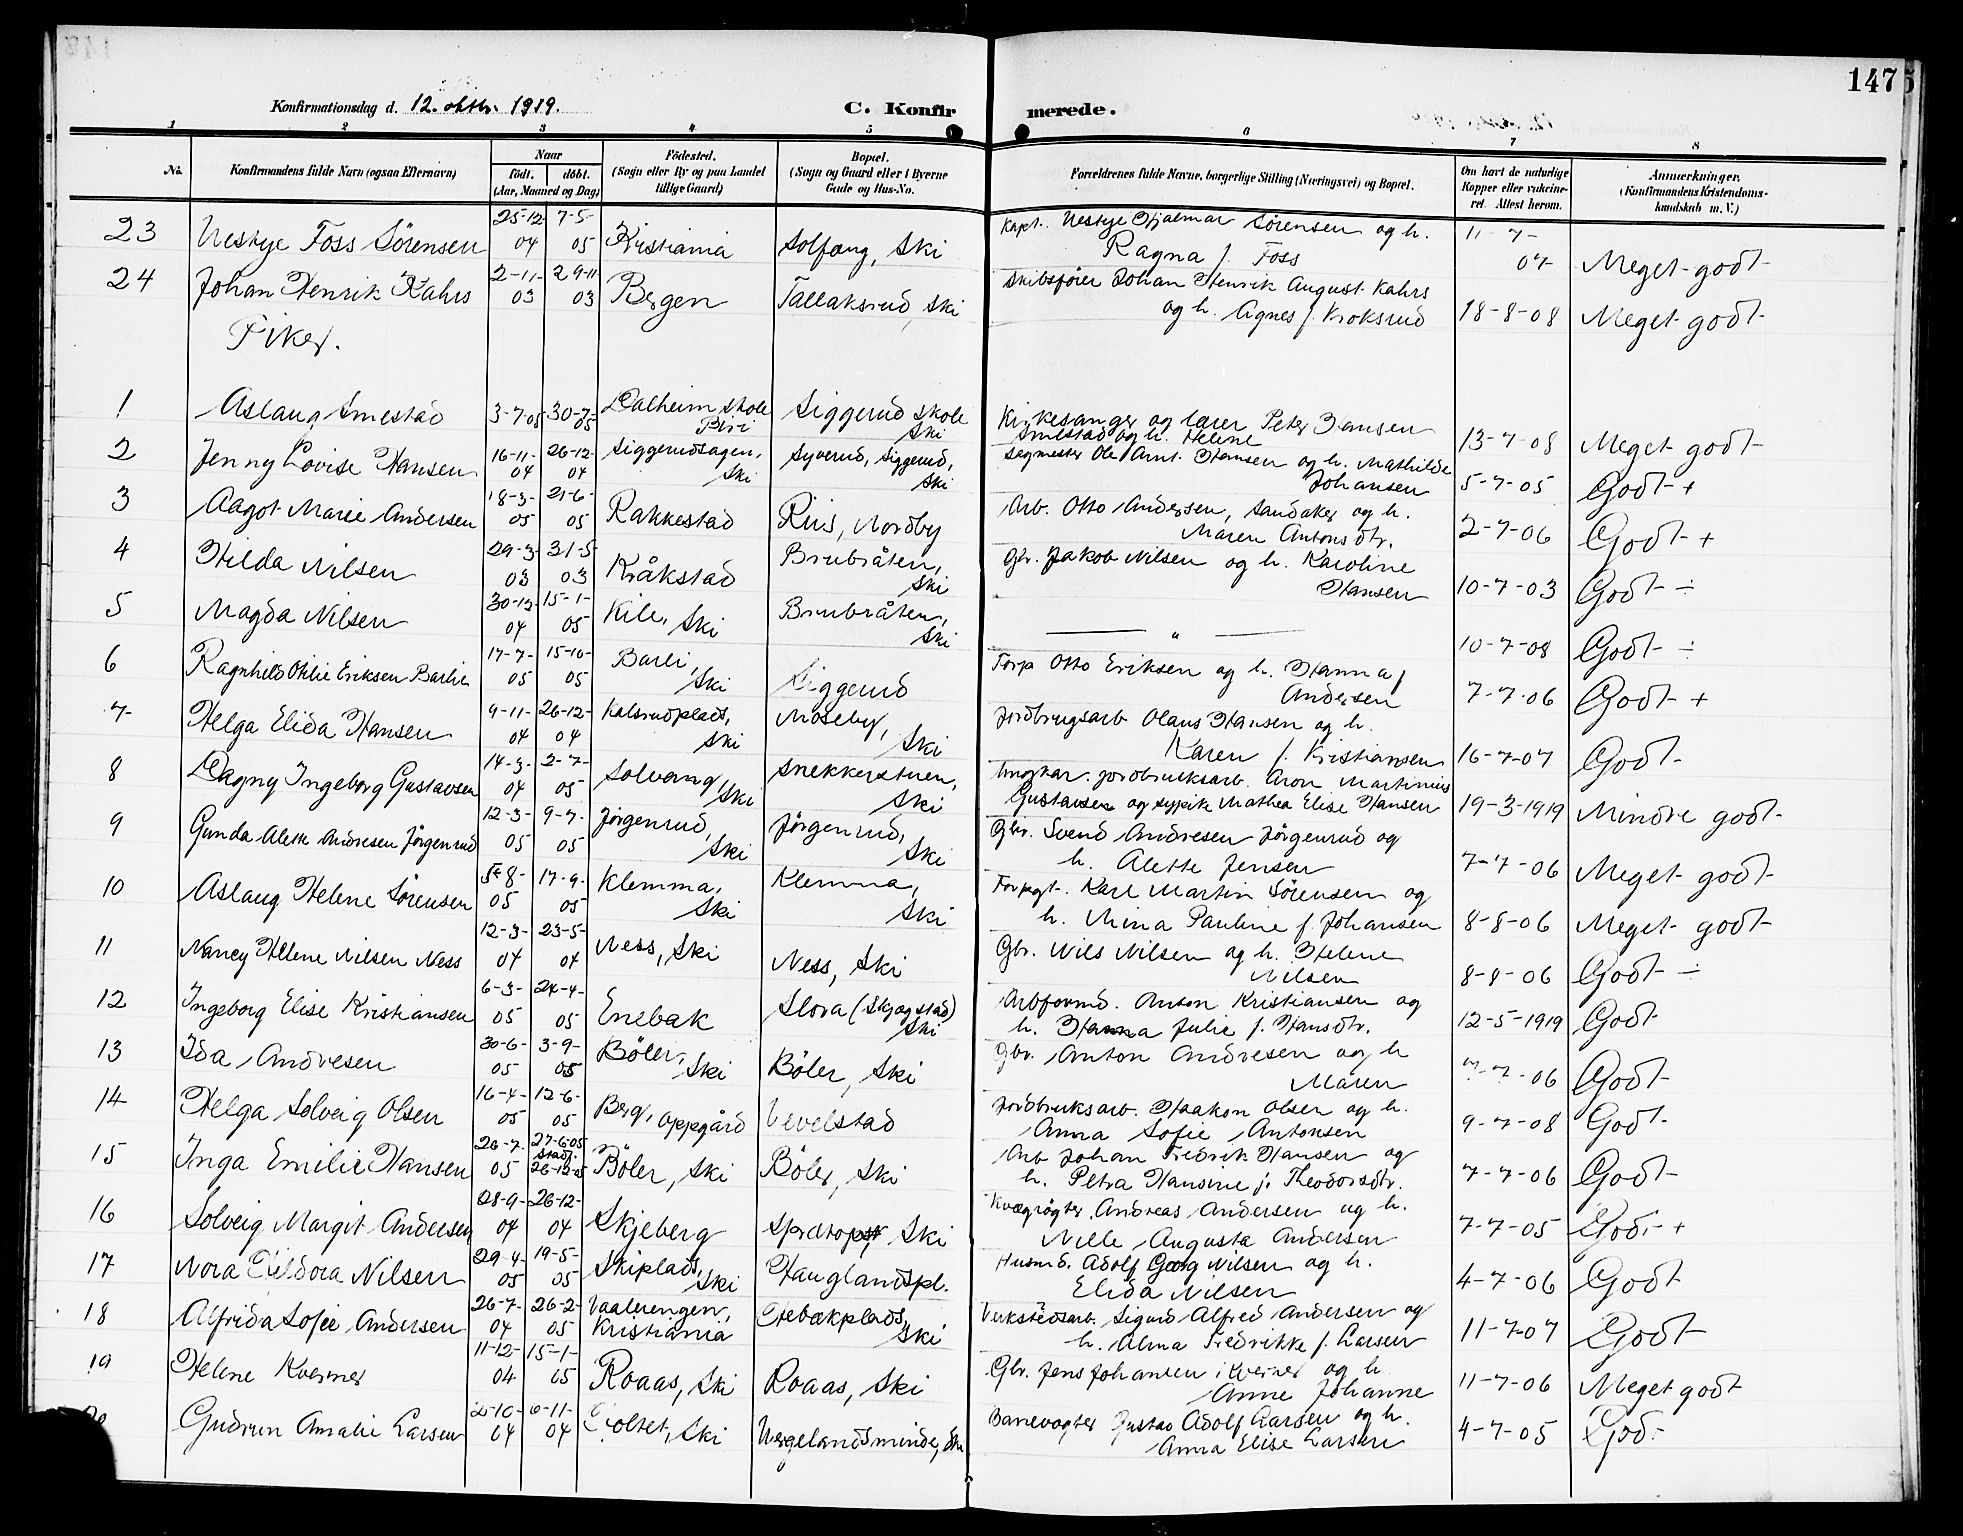 147
Konfirmationsdag d. 12. oktbr. 1919.
C. Konfirmerede.
1 2 3 4 5 6 7 8
No. Konfirmandens fulde Navn (ogsaa Efternavn) Naar födt. döbt. (Aar, Maaned og Dag) Födested. (Sogn eller By og paa Landet tillige Gaard) Bopæl. (Sogn og Gaard eller i Byerne Gade og Hus-No. Forældrenes fulde Navne, borgerlige Stilling (Næringsvei) og Bopæl. Om havt de naturlige Kopper eller vakcineret. Attest herom. Anmærkninger. (Konfirmandens Kristendomskundskab m. V.)
23 Nestye Foss Sörensen 25-12-04 7-5-05 Kristiania Solfang, Ski Kapt. Nestye Hjalmar Sörensen og h. Ragna f. Foss 11-7-07 Meget godt
24 Johan Henrik Kahrs 2-11-03 29-11-03 Bergen Tallaksrud, Ski Skibsförer Johan Henrik August Kahrs og h. Agnes f. Kroksrud 18-8-08 Meget godt
Piker.
1 Aslaug Smestad 3-7-05 30-7-05 Dalheim skole Biri Siggerud skole Ski Kirkesanger og lærer Peter Hansen Smestad og h. Helene 13-7-08 Meget godt
2 Jenny Lovise Hansen 16-11-04 26-12-04 Siggerudsagen, Ski Syverud, Siggerud, Ski Sagmester Ole Arnt Hansen og h. Mathilde Johansen 5-7-05 Godt +
3 Aagot Marie Andersen 18-3-05 21-6-05 Rakkestad Riis, Nordby Arb. Otto Andersen, Sandaker og h. Maren Antonsdtr. 2-7-06 Godt +
4 Hilda Nilsen 29-3-03 31-5-03 Kråkstad Brubråten, Ski Gbr. Jakob Nilsen og h. Karoline Hansen 10-7-03 Godt ÷
5 Magda Nilsen 30-12-04 15-1-05 Kile, Ski Brubråten, Ski — " — 10-7-08 Godt ÷
6 Ragnhild Otilie Eriksen Barlie 17-7-05 15-10-05 Barli, Ski Siggerud Forp Otto Eriksen og h. Hanna f Andersen 7-7-06 Godt +
7 Helga Elida Hansen 9-11-04 26-12-04 Kalsrudplads, Ski Moseby, Ski Jordbrugsarb Olaus Hansen og h. Karen f. Kristiansen 16-7-07 Godt
8 Dagny Ingeborg Gustavsen 14-3-04 2-7-05 Solvang, Ski Snekkerstuen, Ski Ungkar. jordbruksarb. Aron Martinius Gustavsen og sypike Mathea Elise Hansen 19-3-1919 Mindre godt
9 Gunda Alette Andresen Jörgenrud 12-3-05 9-7-05 Jörgenrud, Ski Jörgenrud, Ski Gbr. Svend Andresen Jörgenrud og h. Alette Jensen 7-7-06 Meget godt
10 Aslaug Helene Sörensen 5-8-05 17-9-05 Klemma, Ski Klemma, Ski Forpgt. Karl Martin Sörensen og h. Mina Pauline f. Johansen 8-8-06 Meget godt
11 Nancy Helene Nilsen Ness 12-3-04 23-5-04 Ness, Ski Ness, Ski Gbr. Nils Nilsen og h. Helene Nilsen 8-8-06 Godt ÷
12 Ingeborg Elise Kristiansen 6-3-05 24-4-05 Enebak Slora (Skjegstad) Ski Arbformd. Anton Kristiansen og h. Hanna Julie f. Hansdtr. 12-5-1919 Godt
13 Ida Andresen 30-6-05 3-9-05 Böler, Ski Böler, Ski Gbr. Anton Andresen og h Maren 7-7-06 Godt
14 Helga Solveig Olsen 16-4-05 12-6-05 Berg, Oppgård Vevelstad Jordbruksarb. Haakon Olsen og h. Anna Sofie Antonsen 9-7-08 Godt
15 Inga Emilie Hansen 26-7-05 27-6-05 stadf. 26-12-05 Böler, Ski Böler, Ski Arb Johan Fredrik Hansen og h. Petra Hansine f. Theodorsdtr. 7-7-06 Godt
16 Solveig Margit Andersen 28-9-04 26-12-04 Skjeberg Ski Kvægrögter Andreas Andersen og h. Nille Augusta Andersen 7-7-05 Godt +
17 Nora Nilsen 29-4-05 19-5-05 Skiplads, Ski Hauglandspl. Husmd. Adolf Georg Nilsen og h. Elida Nilsen 4-7-06 Godt
18 Alfrida Sofie Andersen 26-7-04 26-2-05 Vaalerengen, Kristiania Stebækplads Ski Verkstedsarb. Sigurd Alfred Andersen og h. Alma Fredrikke f. Larsen 11-7-07 Godt
19 Helene Kverner 11-12-04 15-1-05 Roaas, Ski Roaas, Ski Gbr. Jens Johansen i Kverner og h Anne Johanne 11-7-06 Meget godt
Gudrun Amalie Larsen 04 6-11-04 Ski Vergelandsminde, Ski Banevogter Gustav Adolf Larsen og h. Anna Elise Larsen 4-7-05 Godt